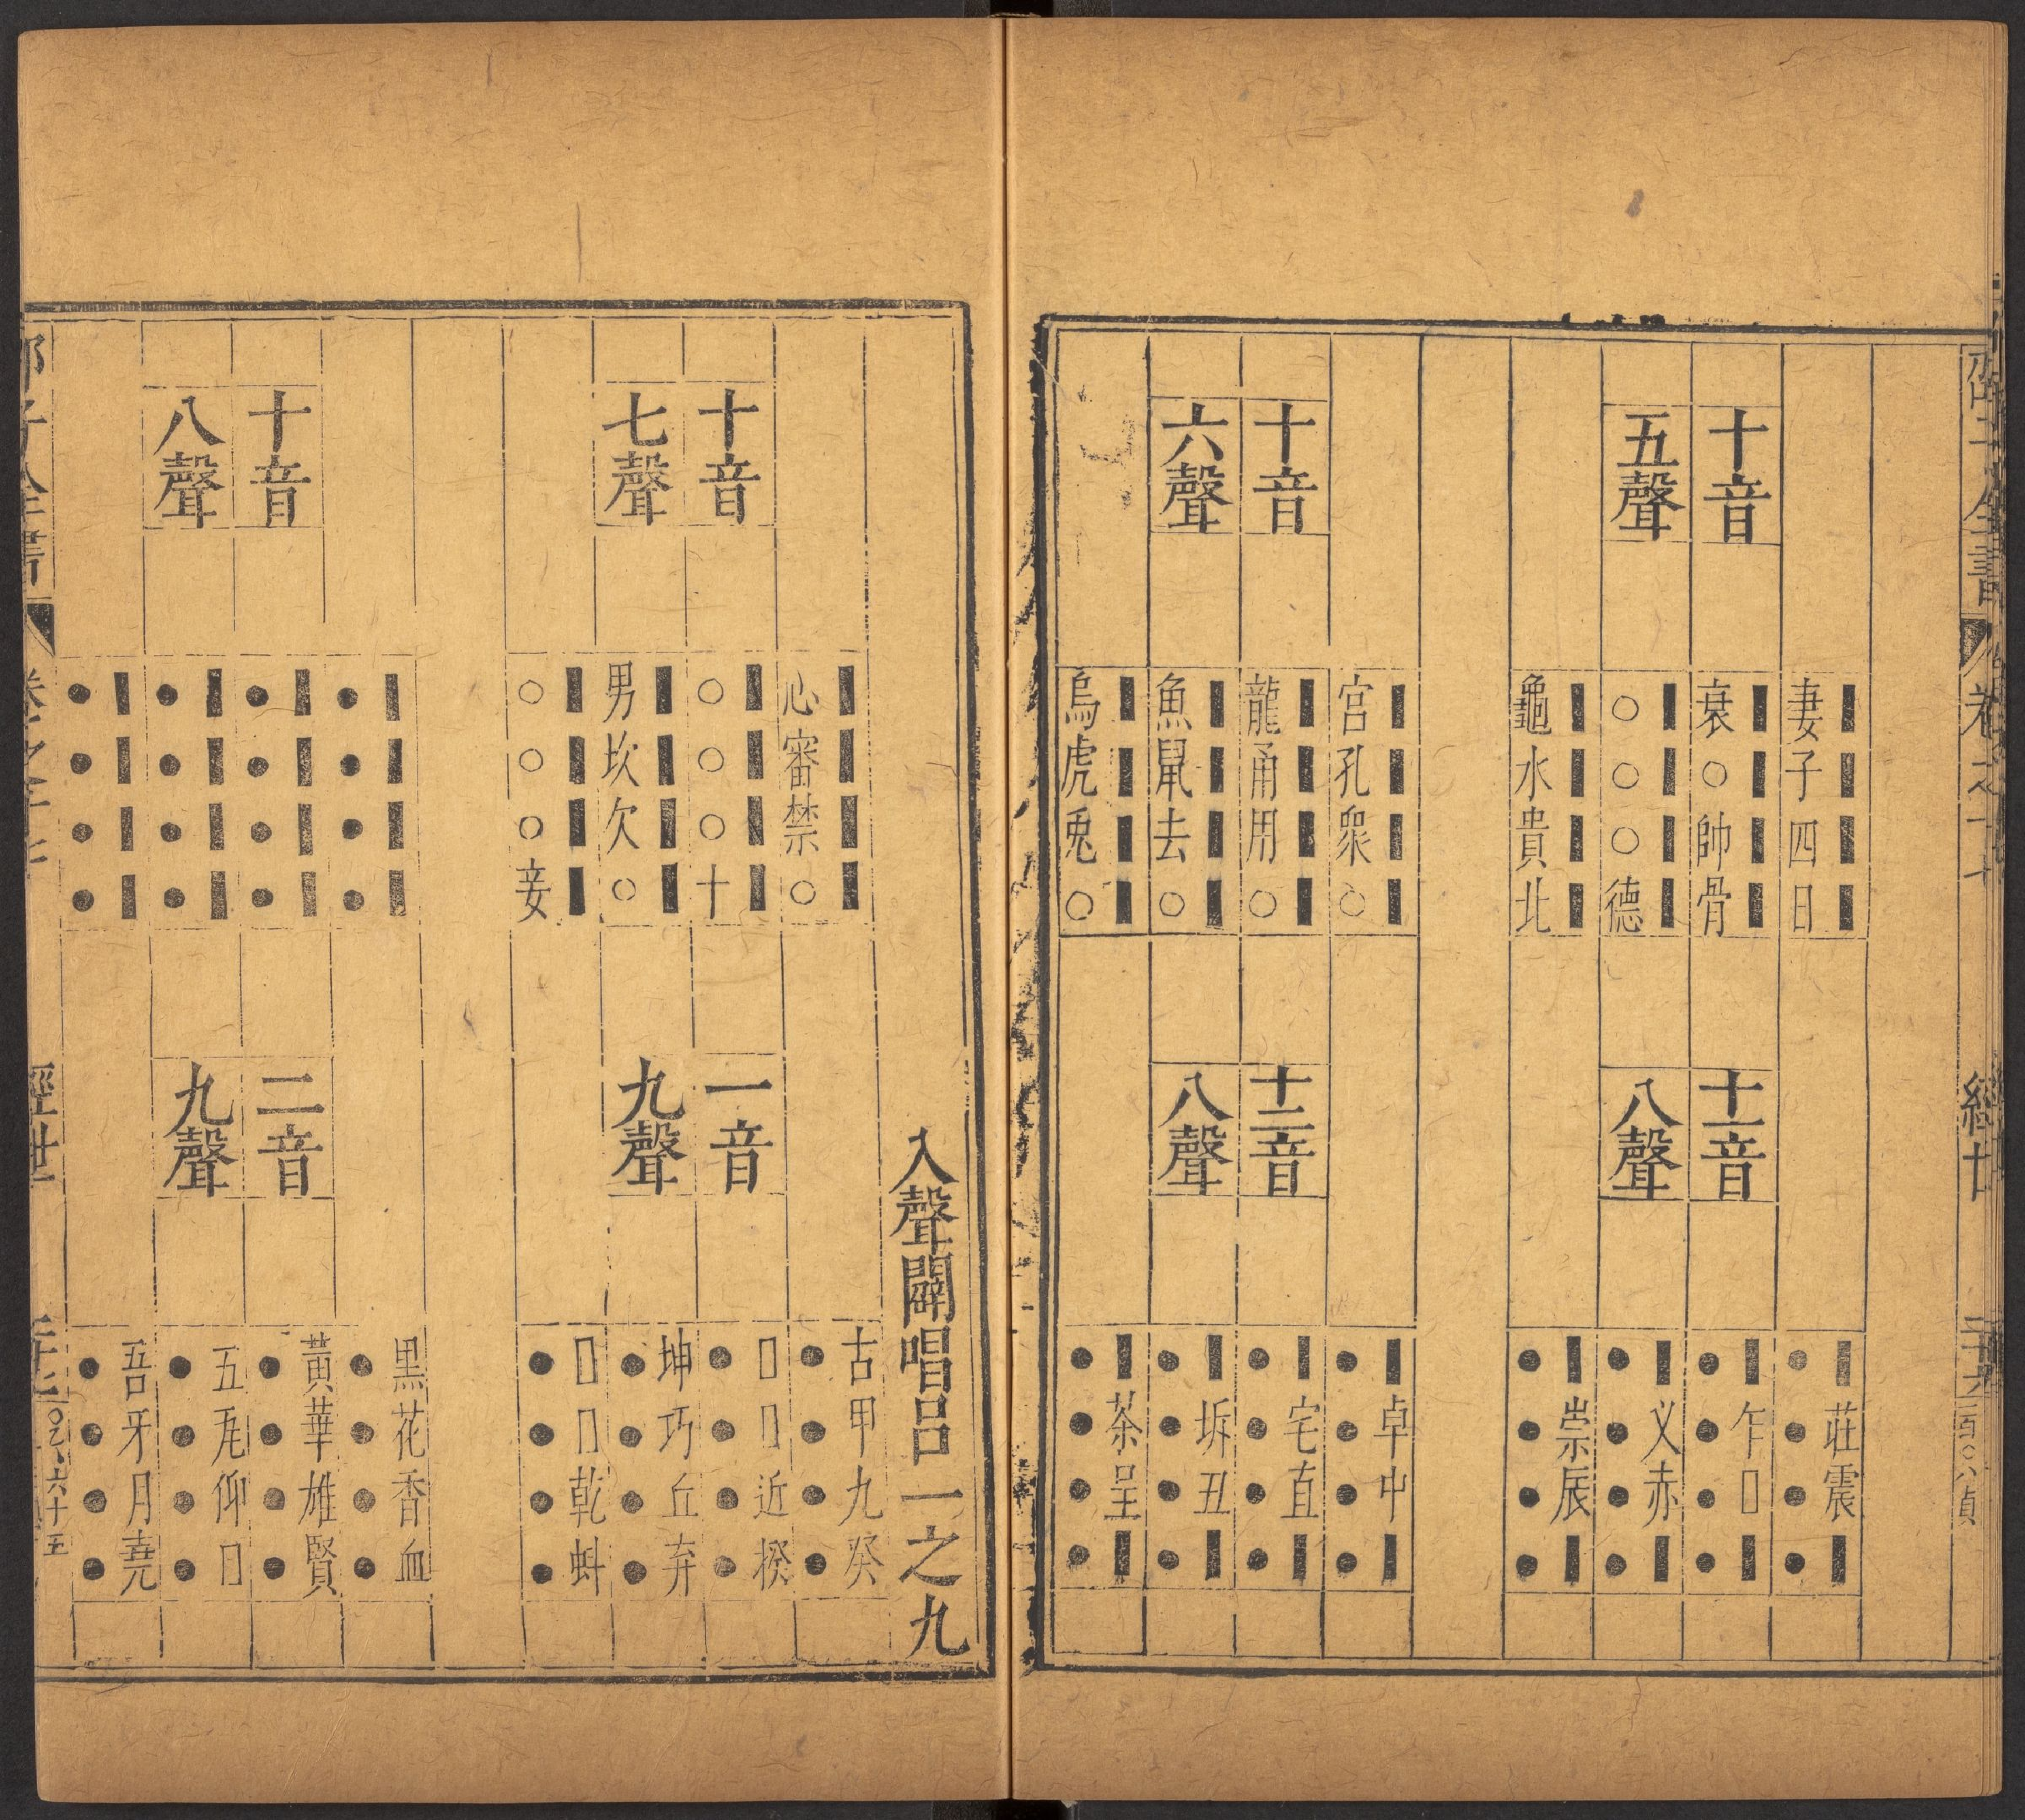 十音
五聲
妻子四日
衰○帥骨
○○○德
龜水貴北
十一音
八聲
■莊震■
●●●●
■乍□■
●●●●
■叉赤■
●●●●
■崇辰■
●●●●
十音
六聲
宮孔衆○
龍甬用○
魚鼠去○
烏虎兎○
十二音
八聲
■卓中■
●●●●
■宅直■
●●●●
■坼丑■
●●●●
■茶呈■
●●●●
入聲闢唱呂一之九
十音
七聲
心審禁○
○○○十
男坎欠○
○○○妾
一音
九聲
古甲九癸
●●●●
□□近揆
●●●●
坤巧丘弃
●●●●
□□乾蚪
●●●●
十音
八聲
●●●●
●●●●
●●●●
●●●●
二音
九聲
黑花香血
●●●●
黃華雄賢
●●●●
五瓦仰□
●●●●
吾牙月堯
●●●●